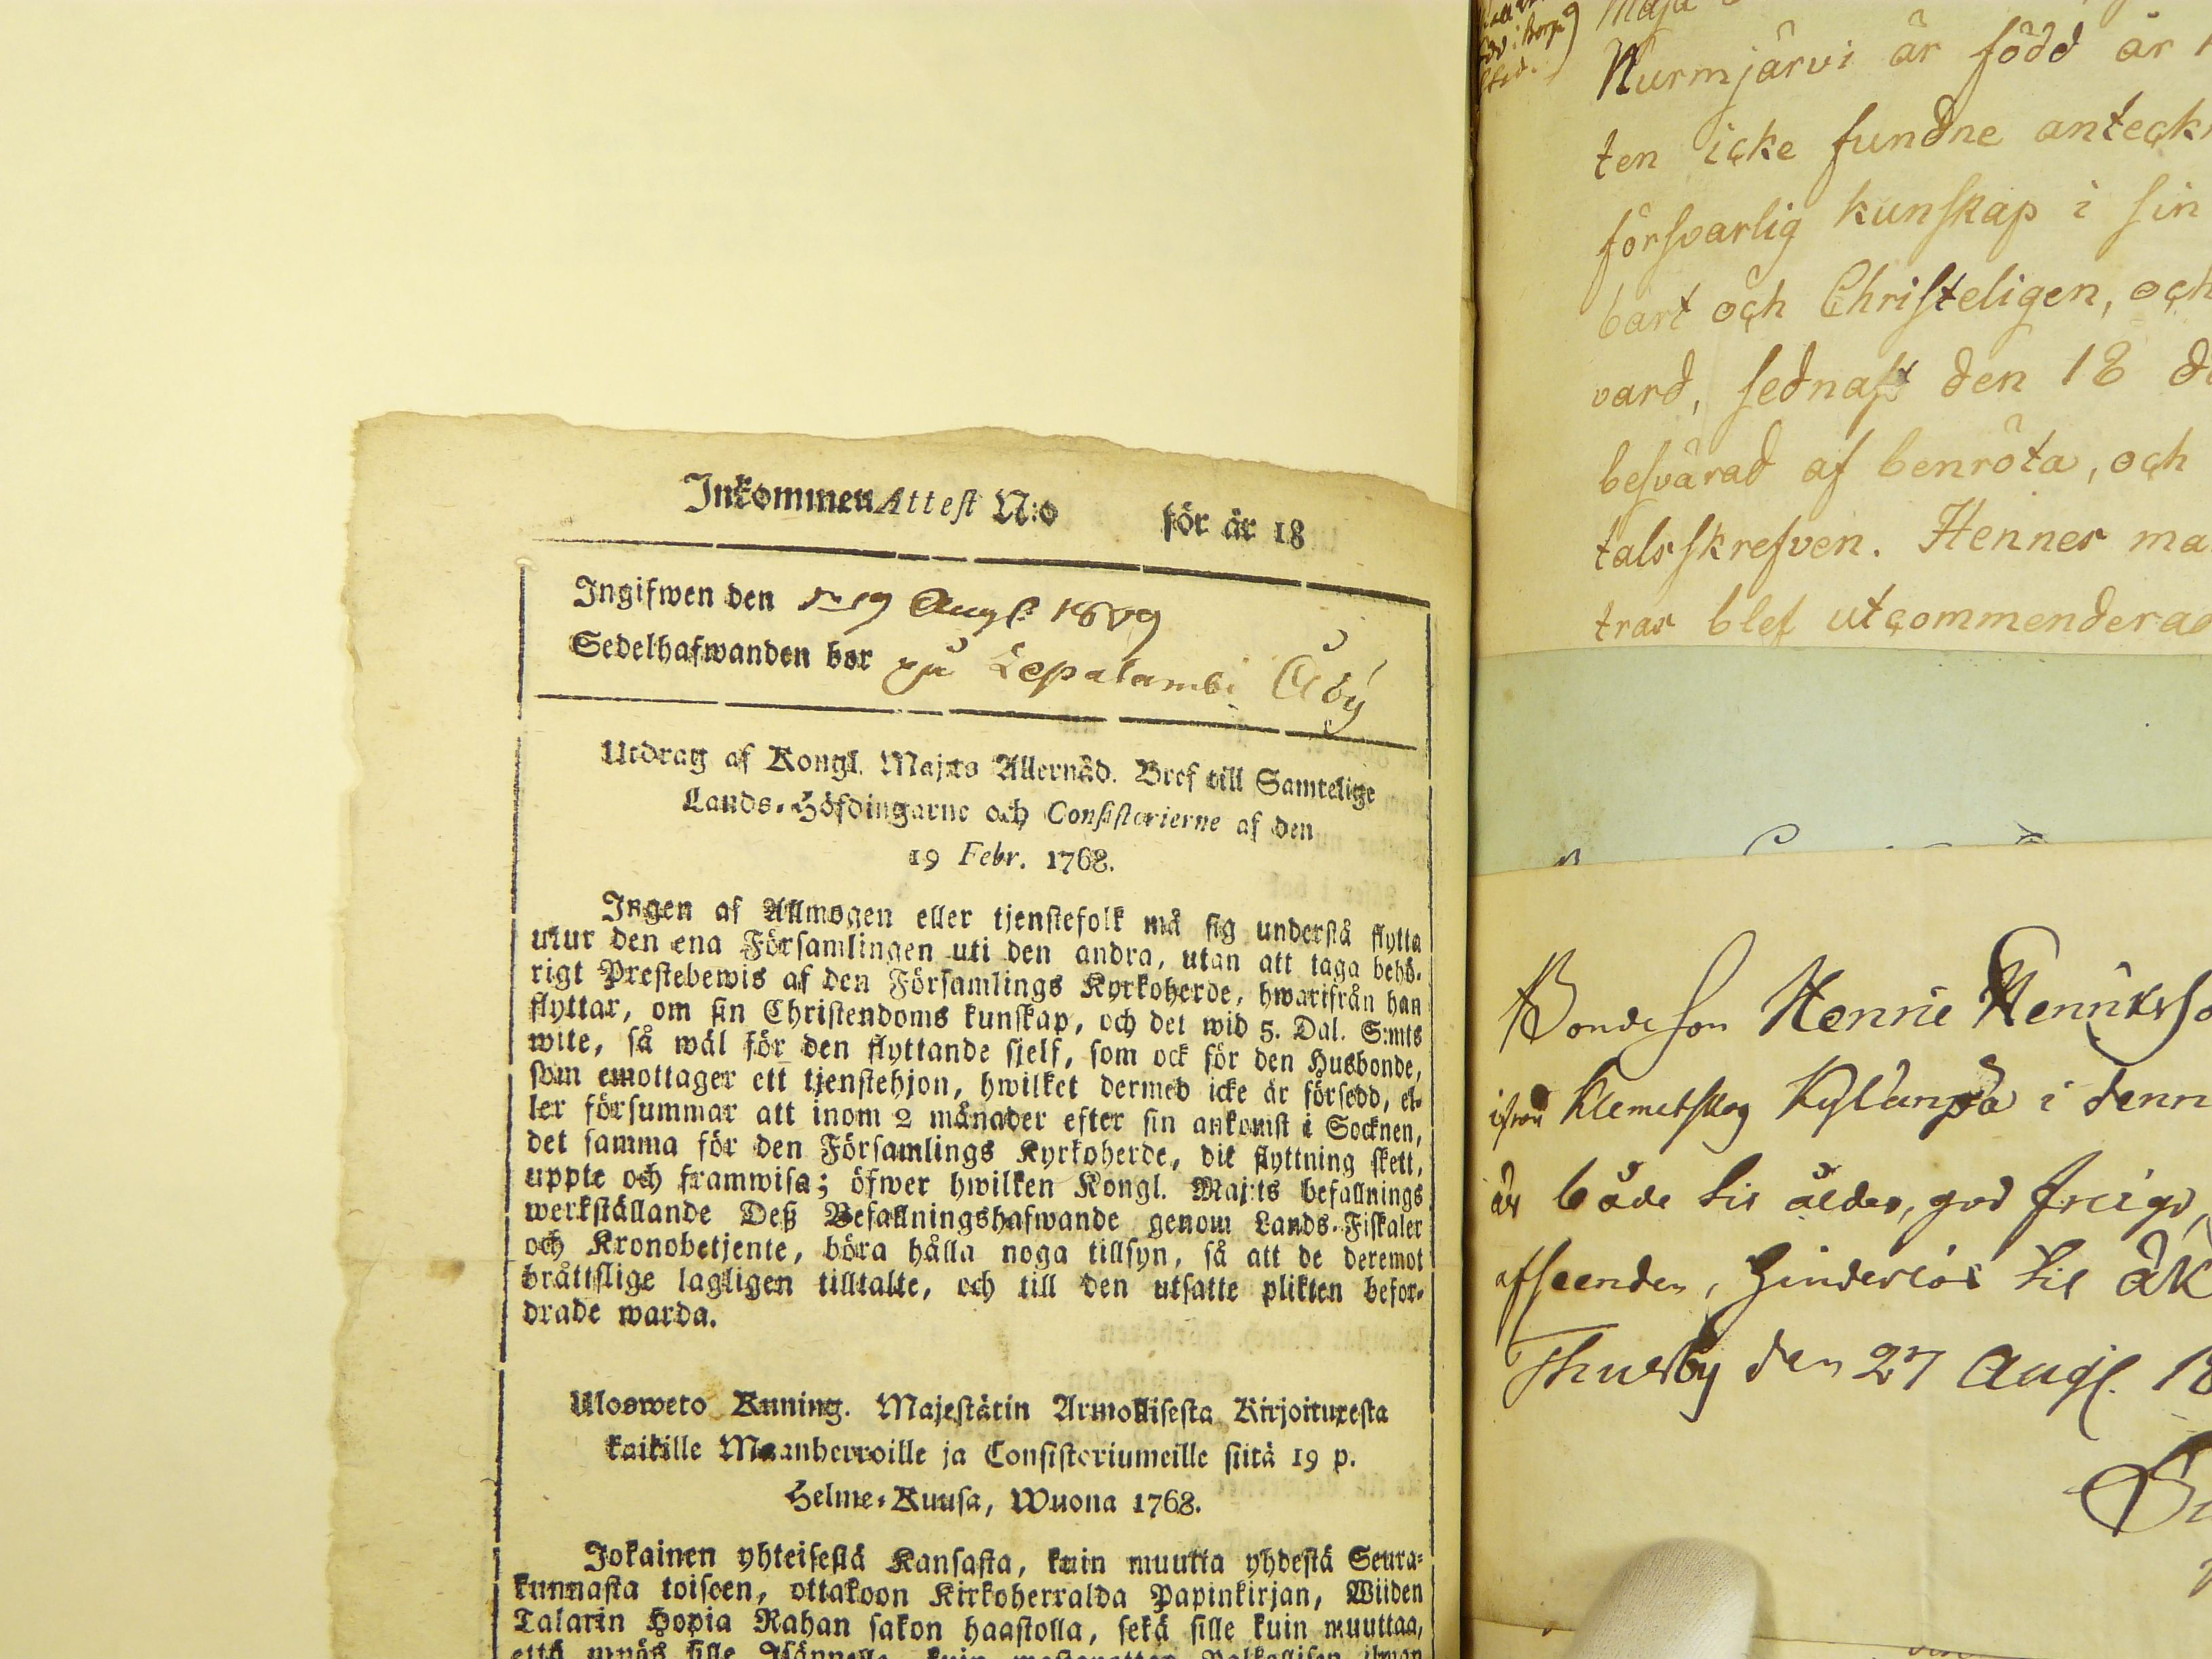 Inkommen Attest N:o för år 18
Ingifwen den 19 Aug. 1809
Sedelhafwanden bor på Lepalambi Åby
Utdrag af Kongl. Maj:ts Allernåd. Bref till Samtelige
Lands-Höfdingarne och Consistorierne af den
19 Febr. 1768.
Ingen af Allmogen eller tjenstefolk må sig understå flytta
utur den ena Församlingen uti den andra, utan att taga behö-
rigt Prestebewis af den Församlings Kyrkoherde, hwarifrån han
flyttar, om sin Christendoms kunskap, och det wid 5. Dal. S:mts
wite, så wäl för den flyttande sjelf, som ock för den Husbonde,
som emottager ett tjenstehjon, hwilket dermed icke är försedd, el-
ler försummar att inom 2 månader efter sin ankomst i Socknen,
det samma för den Församlings Kyrkoherde, dit flyttning skett,
uppte och framwisa; öfwer hwilken Kongl. Maj:ts befallnings
werkställande Deß Befallningshafwande genom Lands-Fiskaler
och Kronobetjente, böra hålla noga tillsyn, så att de deremot
bråttslige lagligen tilltalte, och till den utsatte plikten befor-
drade warda.
Ulosweto Kuning. Majestätin Armollisesta Kirjoituxesta
kaikille Maanherroille ja Consistoriumeille siitä 19 p.
Helme-Kuusa, Wuona 1768.
Jokainen yhteisestä Kansasta, kuin muutta yhdestä Seura-
kunnasta toiseen, ottakoon Kirkoherralda Papinkirjan, Wiiden
Talarin Hopia Rahan sakon haastolla, sekä sille kuin muuttaa,
että myös sille Isännelle, kuin
Nurmjärvi är född år
ten icke fundne anteck
försvarlig kunskap i sin
bart och Christeligen, och
vard, sednast den 18
besvärad af benröta, och
talsskrefven. Hennes ma
tras blef utcommenderad
Bondeson Henric Henricsso
ifrån Klemetskog Kylänpä i denn
är både til ålder, god frejd,
afseenden, hinderlös til äk
Thusby den 27 Aug. 18